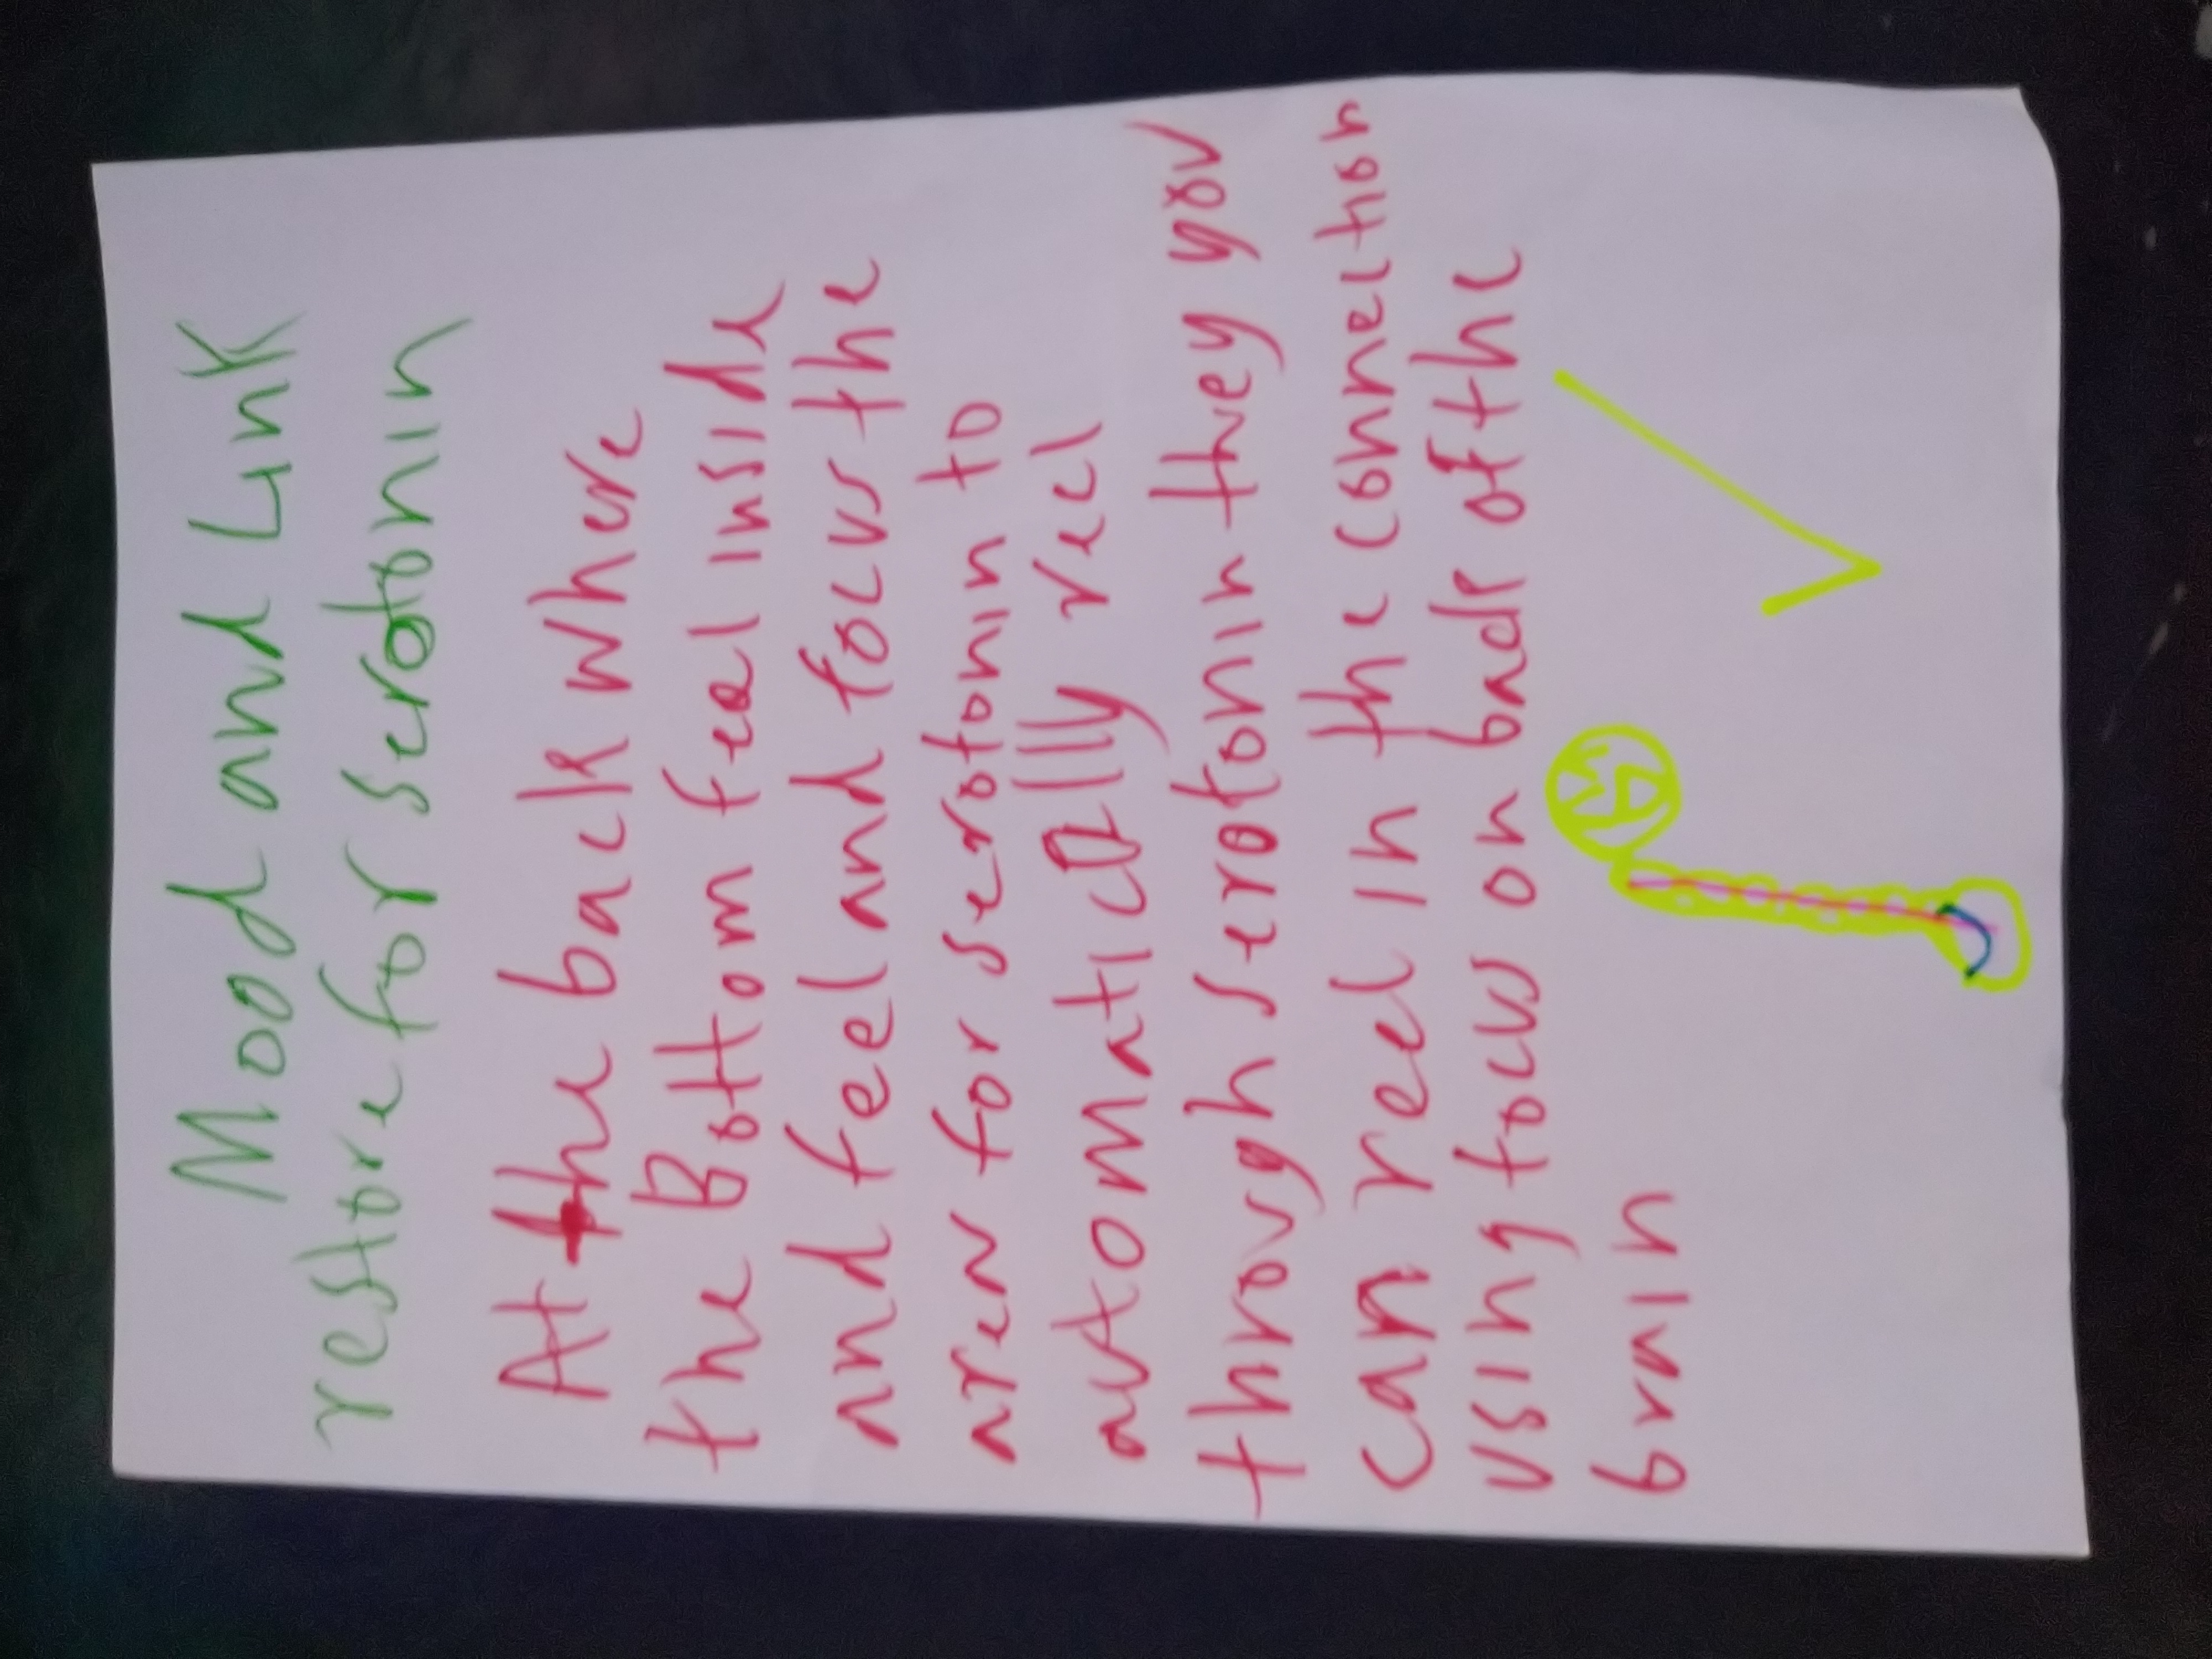 Mood and Link
restore for serotonin
At the back where
the Bottom feal inside
and feel and focus the
area for serotonin to
automatically recl
through serotonin they you
can reel in the connection
using focus on both of the
brain